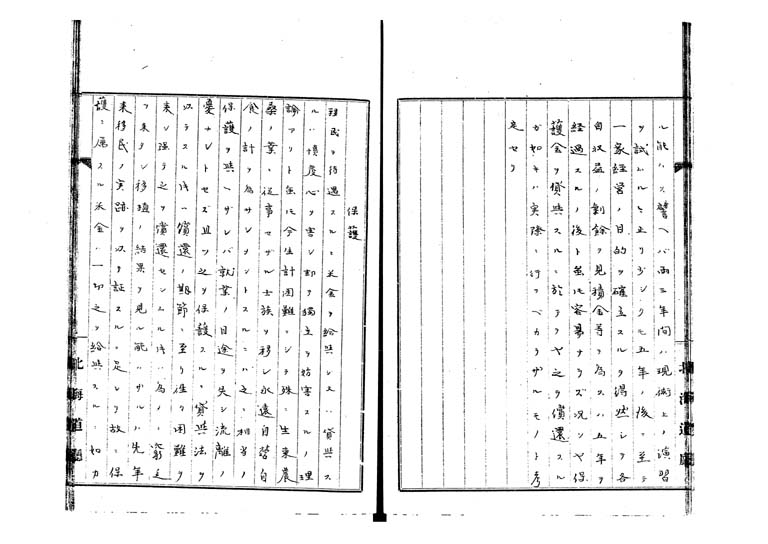 ル能ハス譬ヘバ両三年間ハ現術上ノ演習
ヲ試ハルニ止リ少クモ五年ノ後ニ至テ
一家経営ノ目的ヲ確立スルヲ得然シテ各
自収益ノ剰餘ヲ見積金等ヲ為スハ五年ヲ
経過スルノ後ト雖トモ容易ナラズ況ンヤ保
護金ヲ貸與スルニ於テヲヤ之ヲ償還スル
カ如キハ実際ニ行フベカラザルモノト考
定セリ
保護
移民ヲ待遇スルニ米金ヲ給與シ又ハ貸與ス
ルハ慣慶心ヲ害シ却テ獨立ヲ妨害スルノ理
論アリト雖トモ今生計困難ニシテ殊ニ生来農
桑ノ業ニ従事セザル士族ヲ移シ永遠自営自
食ノ計ヲ為サシメントスルニハ之ニ相当ノ
保護ヲ與ヘザレバ就業ノ目途ヲ失シ流離ノ
憂ナシトセズ且ツ之ヲ保護スルニ貸與法ヲ
以テスル時ハ償還ノ期節ニ至リ往々困難ヲ
来シ強テ之ヲ償還セシムル時ハ為メニ窮乏
ヲ来タシ移殖ノ結果ヲ見ル能ハザルハ先年
来移民ノ実跡ヲ以テ証スルニ足レリ故ニ保
護ニ属スル米金ハ一切之ヲ給與スルニ如カ
北海道廳
北海道廳